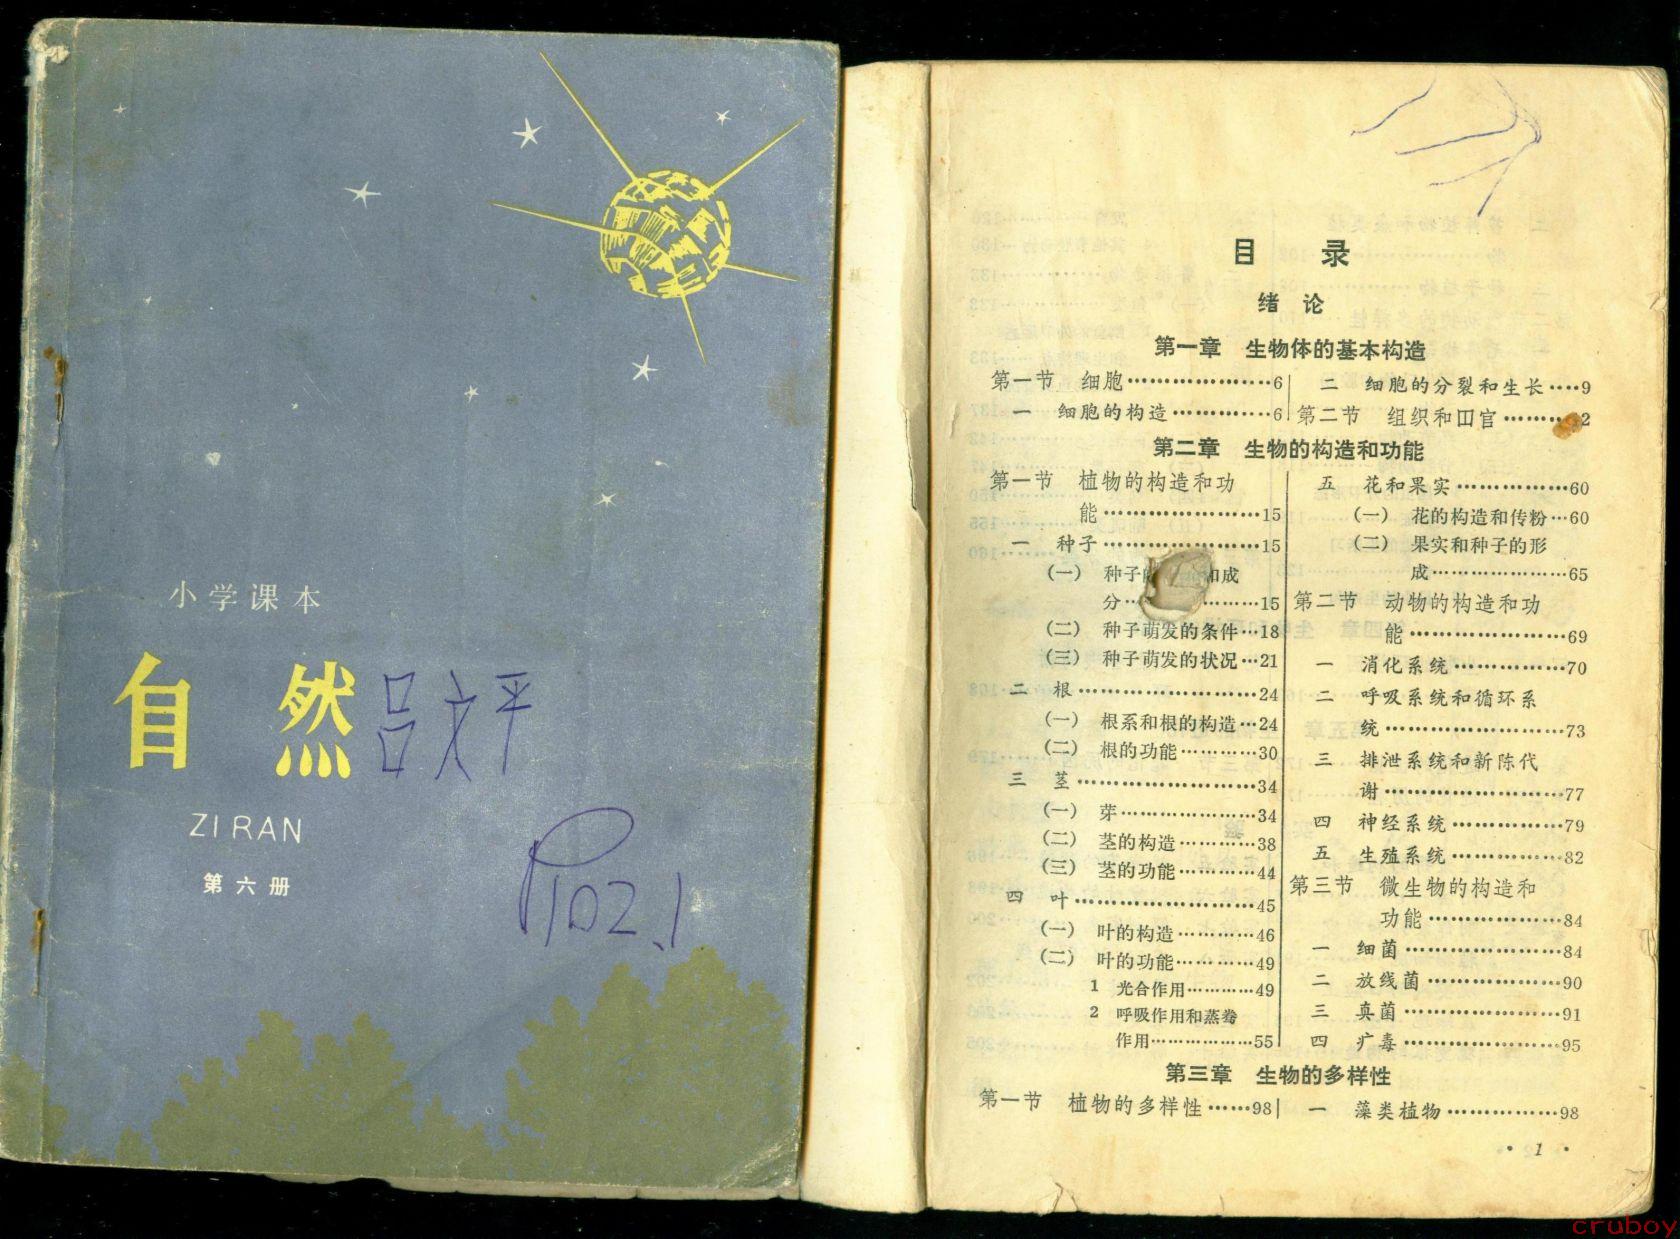 小学课本
自然
吕文平
ZI RAN
第六册
P102.1
目 录
绪 论
第一章 生物体的基本构造
第一节 细胞…………………6
一 细胞的构造……………6
二 细胞的分裂和生长……9
第二节 组织和皿官………2
第二章 生物的构造和功能
第一节 植物的构造和功
能……………………15
一 种子……………………15
(一) 种子 和成
分…………15
(二) 种子萌发的条件…18
(三) 种子萌发的状况…21
二 根………………………24
(一) 根系和根的构造…24
(二) 根的功能…………30
三 茎………………………34
(一) 芽…………………34
(二) 茎的构造…………38
(三) 茎的功能…………44
四 叶………………………45
(一) 叶的构造…………46
(二) 叶的功能…………49
1 光合作用…………49
2 呼吸作用和蒸鸯
作用………………55
五 花和果实………………60
(一) 花的构造和传粉…60
(二) 果实和种子的形
成…………………65
第二节 动物的构造和功
能……………………69
一 消化系统………………70
二 呼吸系统和循环系
统………………………73
三 排泄系统和新陈代
谢………………………77
四 神经系统………………79
五 生殖系统………………82
第三节 微生物的构造和
功能…………………84
一 细菌……………………84
二 放线菌…………………90
三 真菌……………………91
四 疒毒……………………95
第三章 生物的多样性
第一节 植物的多样性……98
一 藻类植物………………98
· 1 ·
cruboy